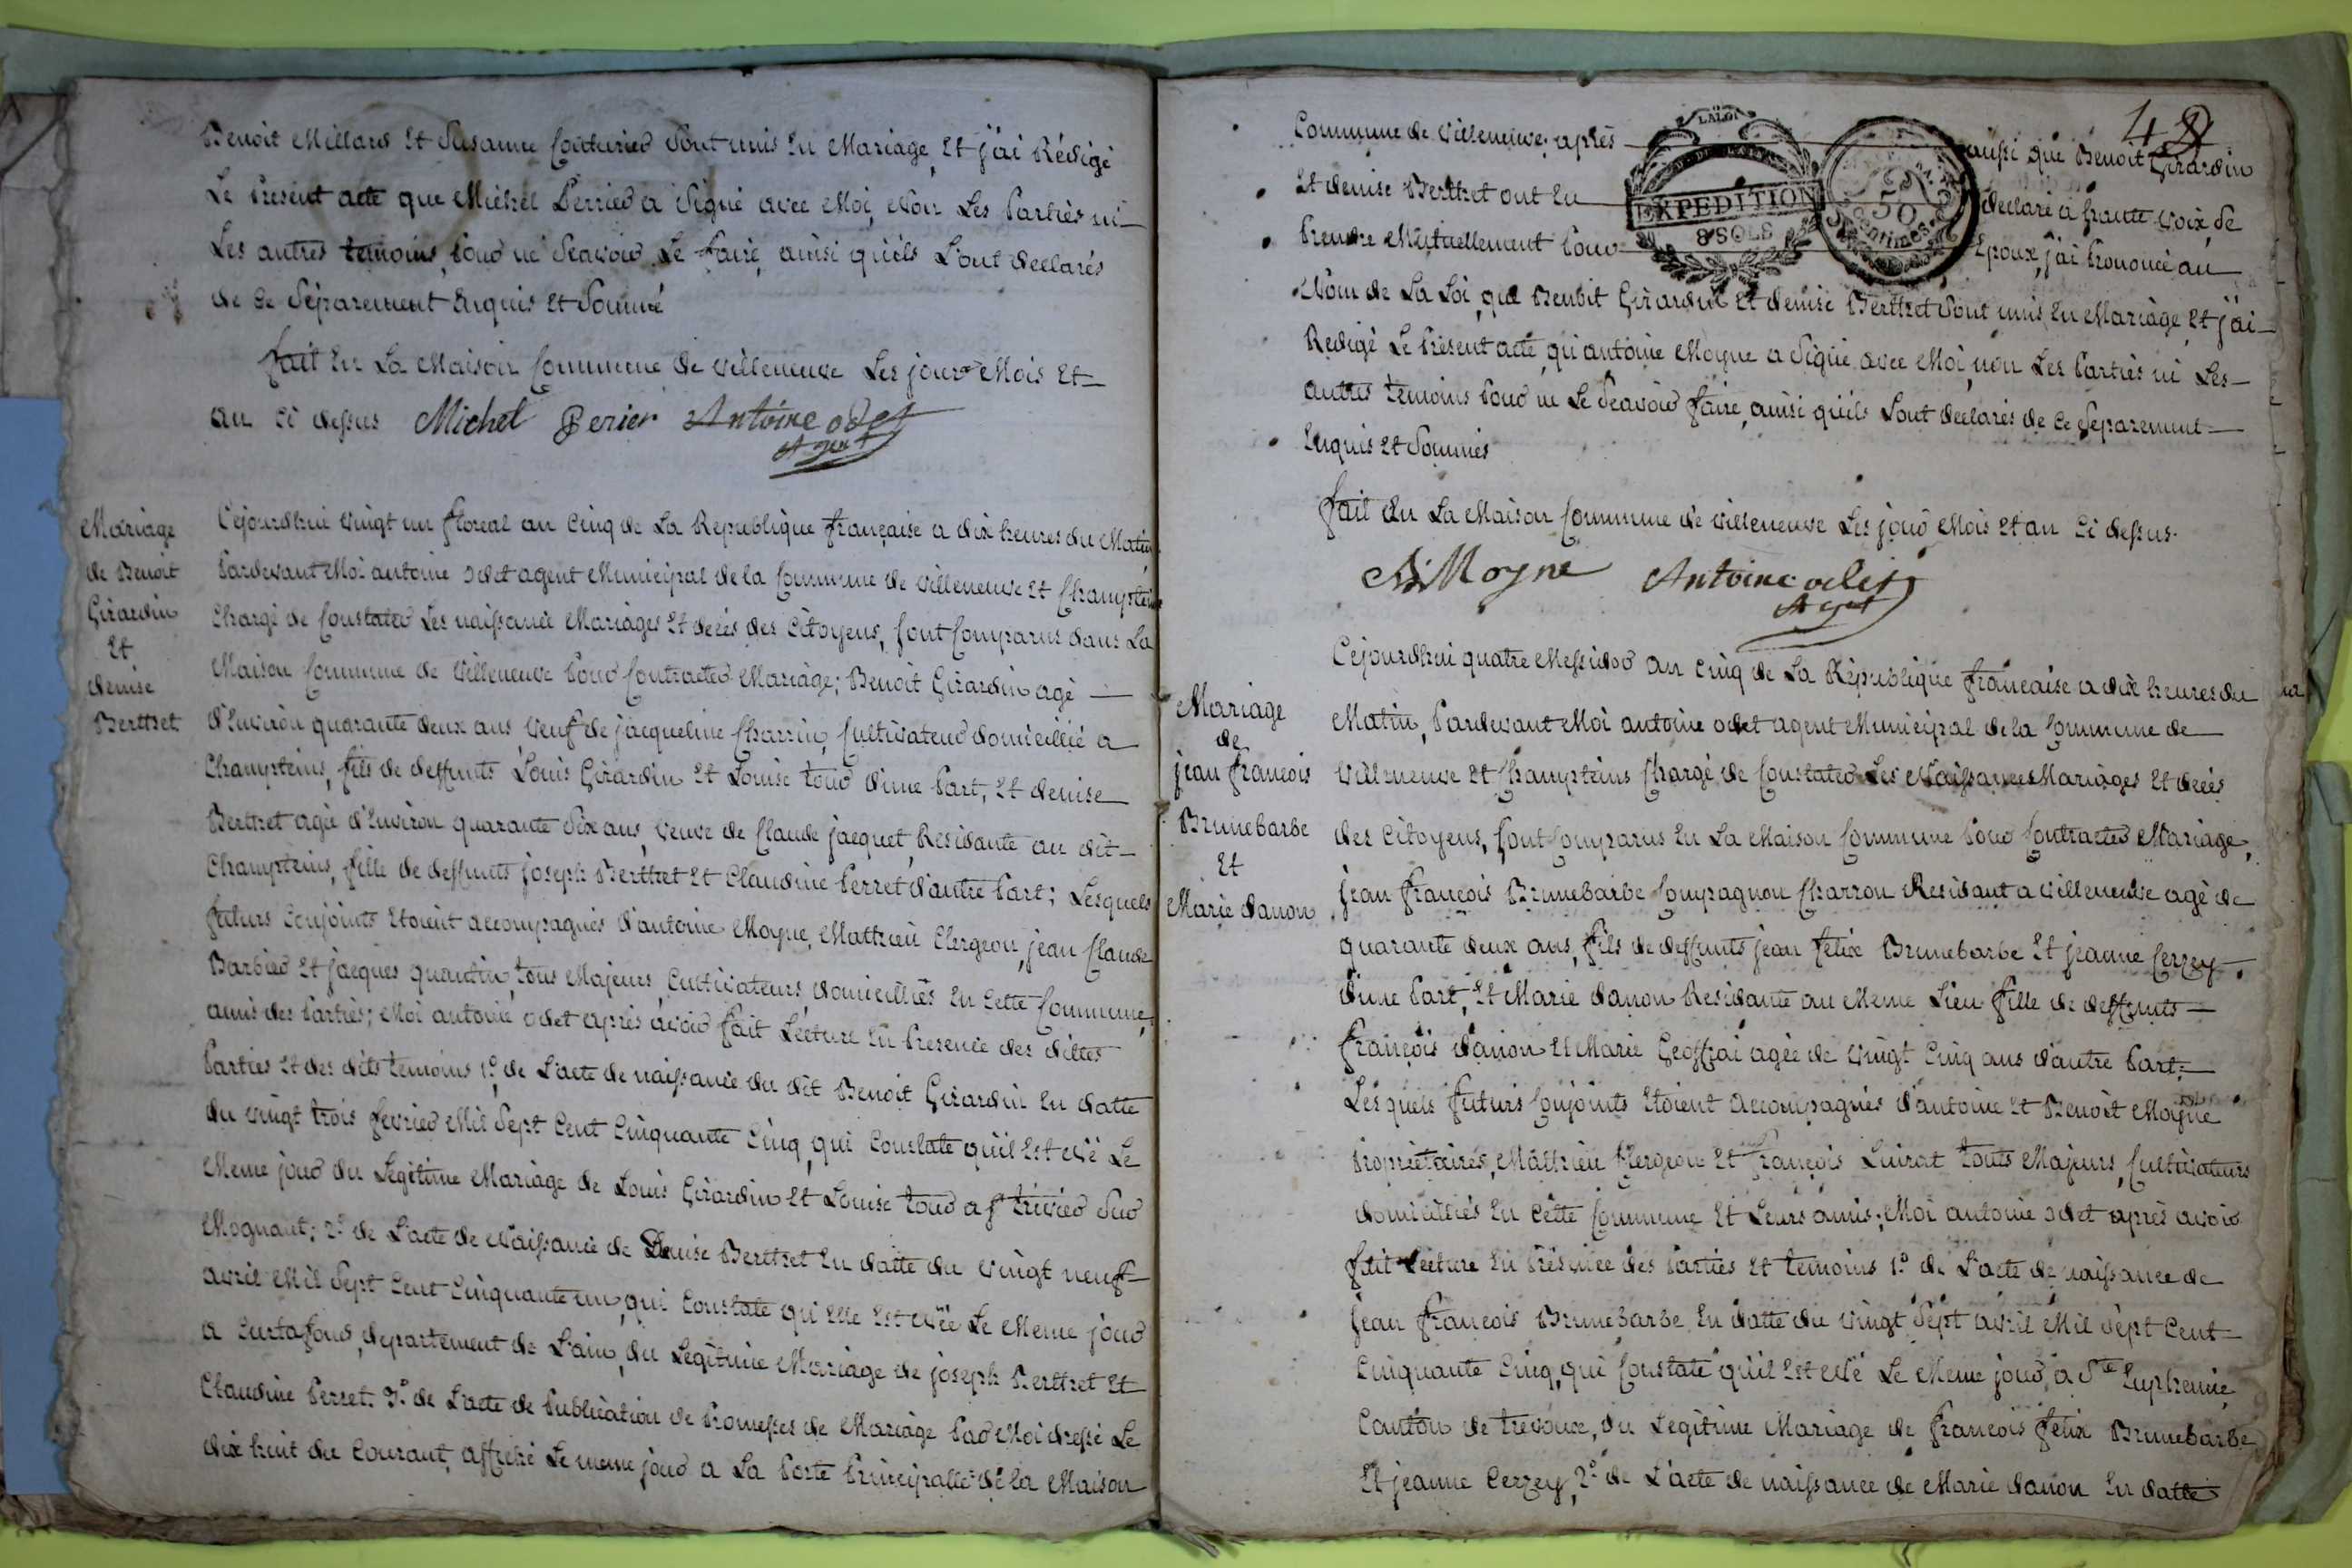 Benoit Millard Et Susanne Couturier Sont unis En Mariage, Et j'ai Rédigé
Le Present acte que Michel Perrier a Signé avec Moi, Non Les Parties ni
Les autres temoins, pour ne Scavoir Le faire, ainsi qu'ils L'ont declarés
de ce Séparement Enquis Et Sommé
fait En La Maison Commune de Villeneuve Les jour Mois Et
an ci dessus Michel Perier Antoine odet
Agent
Mariage
de Benoit
Girardin
Et
denise
Berthet
Cejourdhui vingt un floreal an cinq de La Republique française a dix heures du Matin
Pardevant Moi antoine odet agent Municipal de la Commune de Villeneuve Et Champteins
Chargé de Constater Les naissance Mariages Et decés des Citoyens, sont Comparus dans La
Maison Commune de Villeneuve Pour Contracter Mariage; Benoit Girardin agé
d'Environ quarante deux ans, Veuf de jacqueline Charrin, Cultivateur domicillié a
Champteins, fils de deffunts Louis Girardin Et Louise tour d'une Part, Et denise
Berthet agée d'Environ quarante Six ans, Veuve de Claude jacquet, Residante au dit
Champteins, fille de deffunts joseph Berthet Et Claudine Perret d'autre Part; Lesquels
futurs Conjoints Etoient accompagnés d'antoine Moyne, Matthieu Clergeon, jean Claude
Barbier Et jacques quantin, tous Majeurs, Cultivateurs, domicilliés En Cette Commune,
amis des Parties; Moi antoine odet aprés avoir fait Lecture En Presence des dittes
Parties Et des dits temoins 1.º de L'acte de naissance du dit Benoit Girardin En datte
du vingt trois fevrier Mil Sept Cent Cinquante Cinq, qui Constate qu'il Est Né Le
Meme jour du Legitime Mariage de Louis Girardin Et Louise tour a St trivier Sur
Mognant; 2.º de L'acte de Naissance de Denise Berthet En datte du Vingt neuf
avril Mil Sept Cent Cinquante un, qui Constate qu'Elle Est Née Le Meme jour
a Curtafond, departement de L'ain, du Legitime Mariage de joseph Berthet Et
Claudine Perret. 3.º de L'acte de Publication de Promesses de Mariage Par Moi dressé Le
dix huit du Courant, affiché Le meme jour a La Porte Principalle de la Maison
42
Commune de Villeneuve; aprés aussi que Benoit Girardin
Et denise Berthet ont Eu declaré a haute Voix, Se
Prendre Mutuellement Pour Epoux, j'ai Prononcé au
LA LOI
EXPEDITION
8 SOLS
50
Centimes
Nom de La Loi, que Benoit Girardin Et denise Berthet Sont unis En Mariage, Et j'ai
Redigé Le Présent acte, qu'antoine Moyne a Signé avec Moi, non Les Parties ni Les
autres temoins Pour ne Le Scavoir faire, ainsi qu'ils L'ont declarés de ce Séparement
Enquis Et Sommés
fait En La Maison Commune de Villeneuve Les jour Mois Et an ci dessus.
A. Moyne Antoine odet
Agent
Mariage
de
jean françois
Brunebarbe
Et
Marie danon
Cejourdhui quatre Messidor an cinq de La République française a dix heures du
Matin, Pardevant Moi antoine odet agent Municipal de la Commune de
Villeneuve Et Champteins Chargé de Constater Les Naissances Mariages Et decés
des Citoyens, sont Comparus En La Maison Commune Pour Contracter Mariage,
jean françois Brunebarbe Compagnon Charron Residant a Villeneuve agé de
quarante deux ans, fils de deffunts jean felix Brunebarbe Et jeanne Cerzey
d'une Part, Et Marie danon Residante au Meme Lieu fille de deffunts
françois danon Et Marie Geoffrai agée de Vingt Cinq ans d'autre Part;
Lesquels futurs Conjoints Etoient accompagnés d'antoine Et Benoit Moyne
Propriétaires, Matthieu Clergeon Et françois Luirat touts Majeurs, Cultivateurs
domicilliés En Cette Commune Et Leurs amis; Moi antoine odet aprés avoir
fait Lecture En Présence des Parties Et temoins 1.º de L'acte de naissance de
jean françois Brunebarbe En datte du Vingt Sept avril Mil Sept Cent
Cinquante Cinq, qui Constate qu'il Est Né Le Meme jour, a Ste Euphemie,
Canton de trevoux, du Legitime Mariage de françois felix Brunebarbe
Et jeanne Cerzey, 2.º de L'acte de naissance de Marie danon En datte